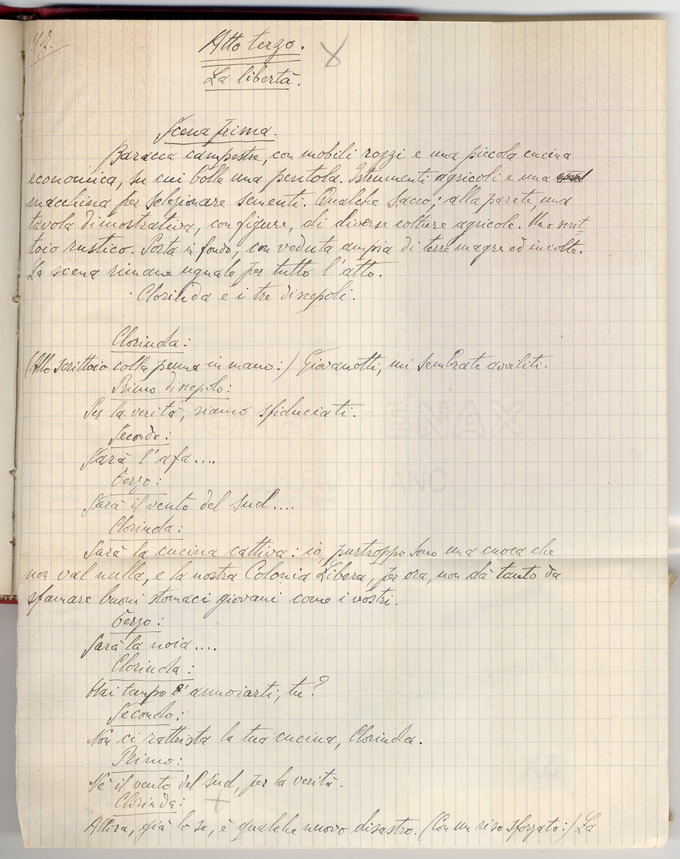 42.
Atto terzo.
La libertà.
Scena prima.
Baracca campestre, con mobili rozzi e una piccola cucina
economica, su cui bolle una pentola. Istrumenti agricoli e una
macchina per selezionare sementi. Qualche sacco; alla parete, una
tavola dimostrativa, con figure, di diverse colture agricole. Uno scrit=
toio rustico. Porta in fondo, con veduta ampia di terre magre ed incolte.
La scena rimane uguale per tutto l'atto.
Clorinda e i tre discepoli.
Clorinda:
(Allo scrittoio colla penna in mano:) Giovanotti, mi sembrate avviliti.
Primo discepolo:
Per la verità, siamo sfiduciati.
Secondo:
Sarà l'afa....
Terzo:
Sarà il vento del sud....
Clorinda:
Sarà la cucina cattiva: io, purtroppo sono una cuoca che
non val nulla, e la nostra Colonia Libera, per ora, non dà tanto da
sfamare buoni stomaci giovani come i vostri.
Terzo:
Sarà la noia....
Clorinda:
Hai tempo d'annoiarti, tu?
Secondo:
Non ci rattrista la tua cucina, Clorinda.
Primo:
Nè il vento del sud, per la verità.
Clorinda:
Allora, già lo so, è qualche nuovo disastro. (Con un riso sforzato:) La